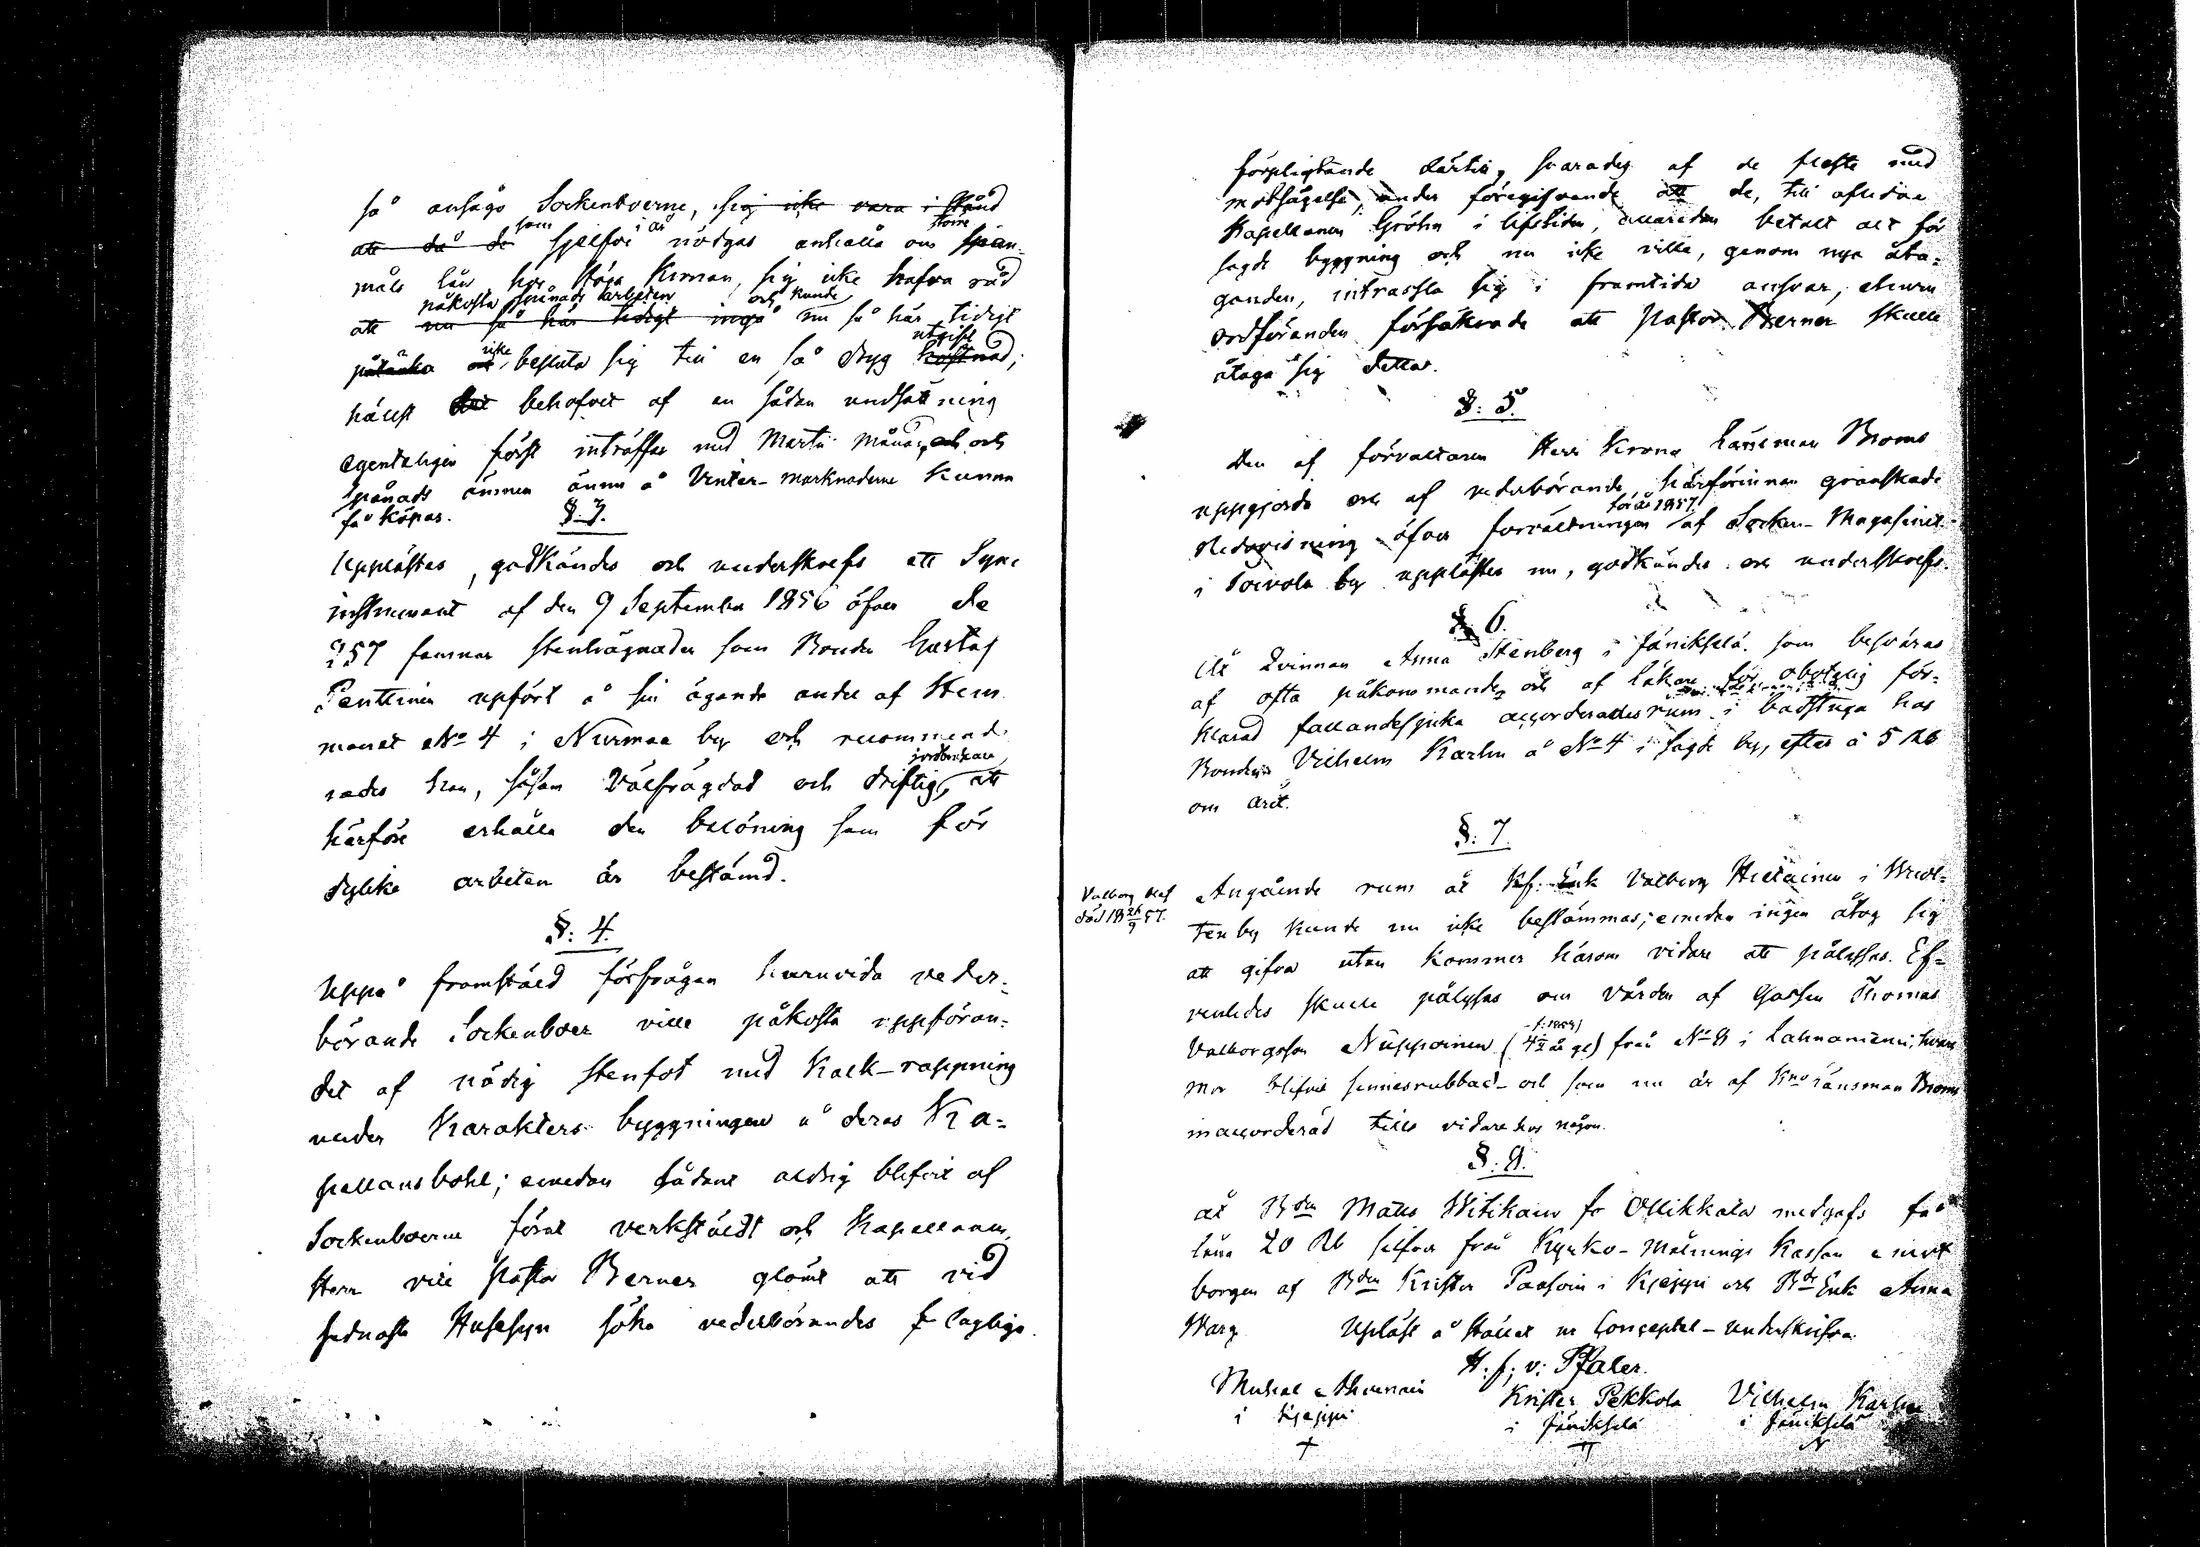 så ansågo Sockneboerne, sig icke vara i stånd
att då de som sjelfve i år nödgas anhålla om större span-
måls lån hos Höga Kronan, sig icke hafva råd
att påkosta spånads arbeten och kunde nu så här tidigt
icke besluta sig till en så dryg utgift kostnad;
hälst behofvet af en sådan undsättning
egentligen först inträffar med Martii månad, och
spånads ämnen ännu å Vinter-marknaderne kunna
få köpas.
§. 3.
Upplästes, godkändes och underskrefs ett Syne
instrument af den 9 September 1856 öfver de
257 famnar stenhägnader som Bonden Gustaf
Penttinen upfört å sin ägande andel af Hem-
manet No 4 i Nurmaa by och recommende-
rades han, såsom välfrägdad och driftig jordbrukare, att
härföre erhålla den belöning som för
dylika arbeten är bestämd.
§: 4.
Uppå framstäld förfrågan huruvida veder-
börande Sockneboer ville påkosta uppföran-
det af nödig stenfot med Kalk-rappning
under Karakters byggningen å deras Ka-
pellansbohl; emedan sådant aldrig blifvit af
Sockneboerne förut verkstäldt och Kapellanen
Herr vice Pastor Berner glömt att vid
sednaste Husesyn söka vederbörandes f laglige
förpligtande dertill, svarades af de fleste med
motsägelse, under föregifvande att de, till aflidne
Kapellanen Gröhn i lifstiden, allaredan betalt allt för
sagde byggning och nu icke ville, genom nya åta-
ganden, intrassla sig i framtida ansvar, ehuru
ordföranden försäkrade att Pastor Berner skulle
åtaga sig detta.
§: 5.
Den af förvaltaren Herr Krono Länsman Broms
uppgjorda och af vederbörande härförinnan granskade
Redovisning öfver förvaltningen för år 1857 af Socken-Magasinet
i Toivola by upplästes nu, godkändes och underskrefs.
§ 6.
Åt Qvinnan Anna Stenberg i Jänikselä, som besväras
af ofta påkommande och af läkare för obotelig för-
klarad fallandesjuka accorderades rum i badstuga hos
Bonden Vilhelm Karhu å No 4 i sagde by, efter à 5 Rb
om året.
§: 7.
Valborg
död 18 26/9 57.
Angående rum åt Enk Valborg Hietainen i
tenby kunde nu icke bestämmas; emedan ingen åtog sig
att gifva utan kommer härom vidare att pålysas. Ef-
venledes skulle pålysas om vården af Gossen Thomas
Valborgsson Nupponen (f: 1854) från No 8 i Lahnaniemi, hvars
mor blifvit sinnesrubbad och som nu är af Kno Länsman Broms
inaccorderad tills vidare hos någon.
§: 8.
åt Bden Matts Witikain fr Ollikkala medgafs få
låna 20 Rb silfver från Kyrko-Målnings Kassan emot
borgen af Bden Krister Paasoin i Kiesjyri och Bde Enk Anna
Warg Upläst å stället ur Conceptet-underskrifva.
H. f. v: Pfaler.
Krister Pekkola Vilhelm Karhu
i i Jänikselä i Jänikselä